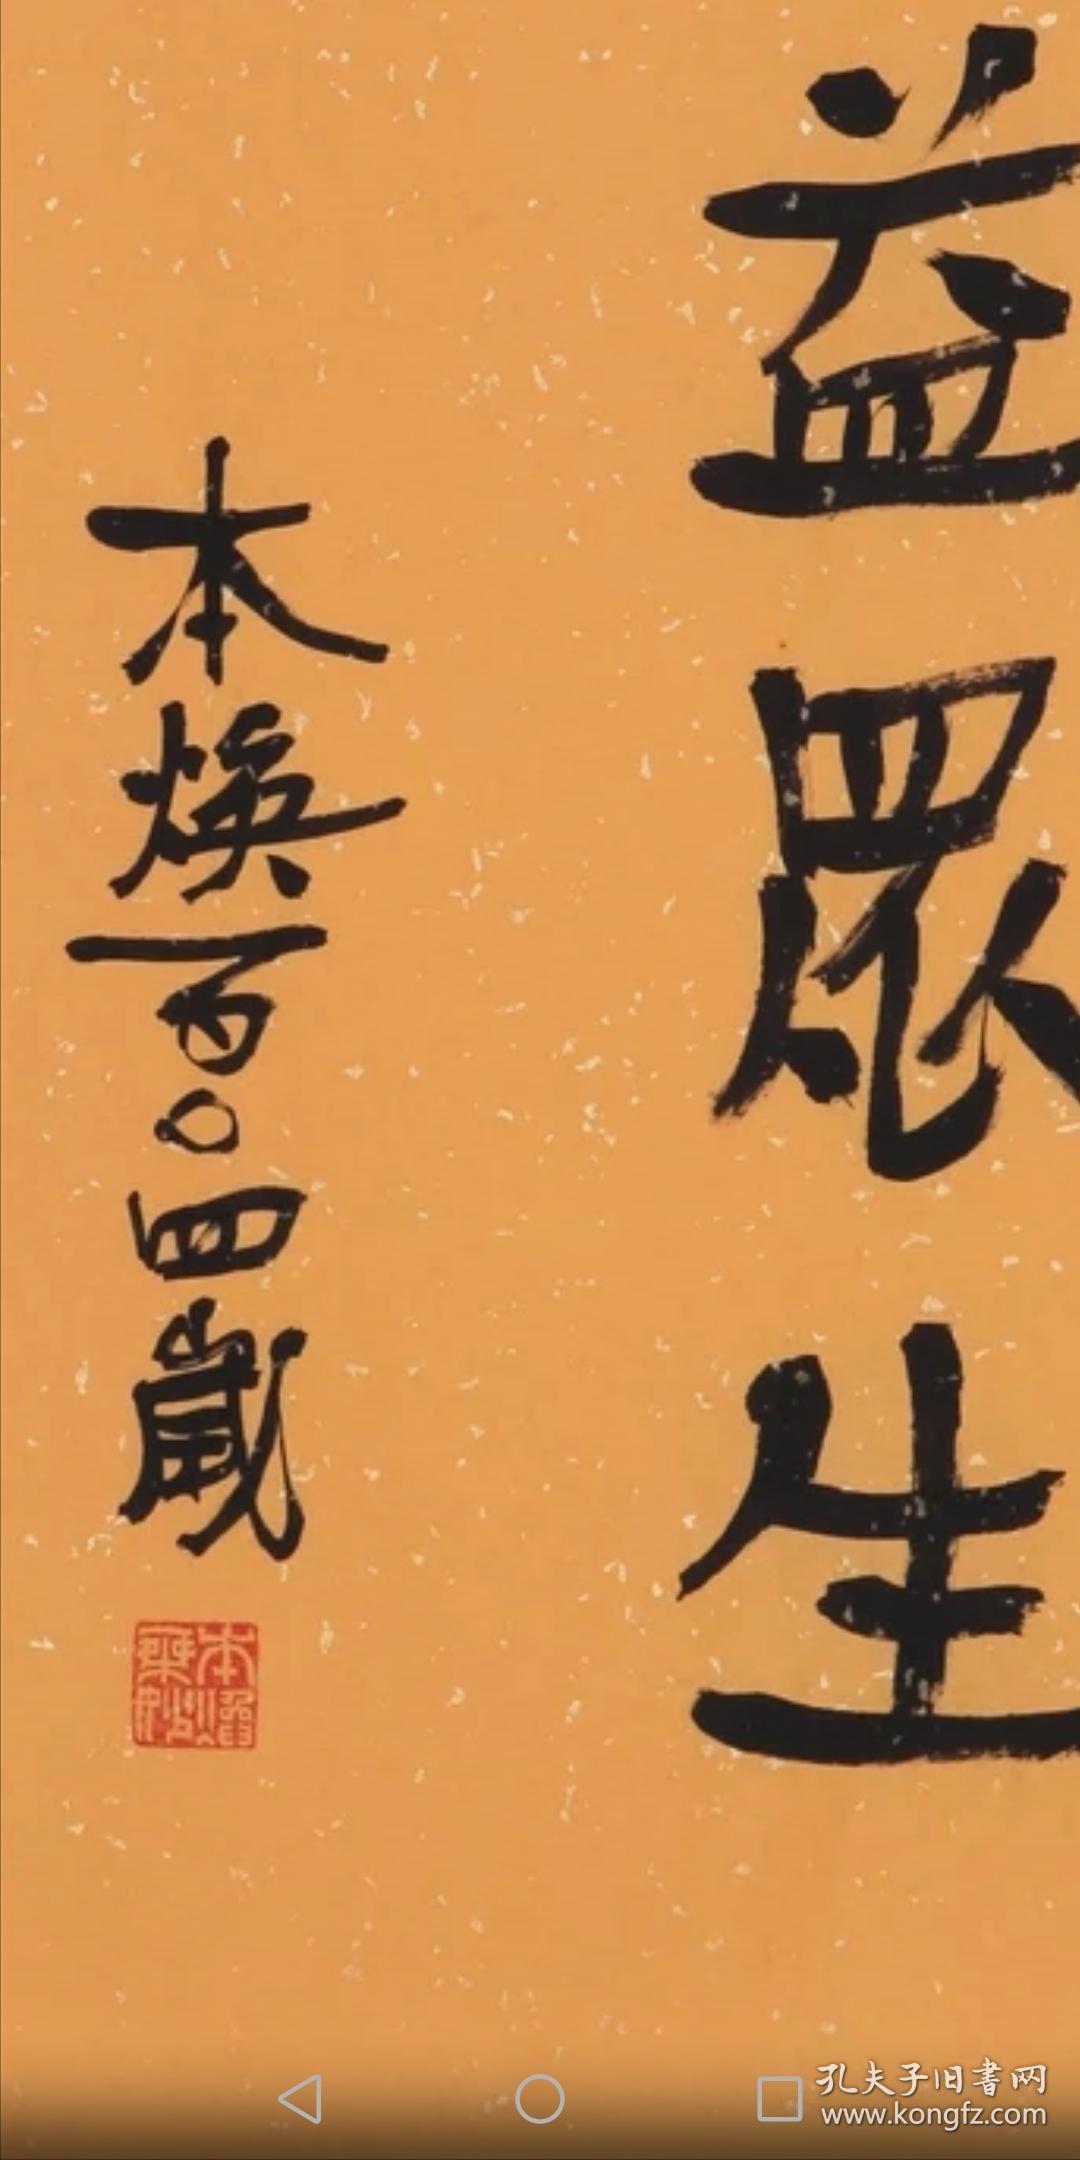 益眾生
本煥一百〇四歲
孔夫子旧書网
www.kongfz.com